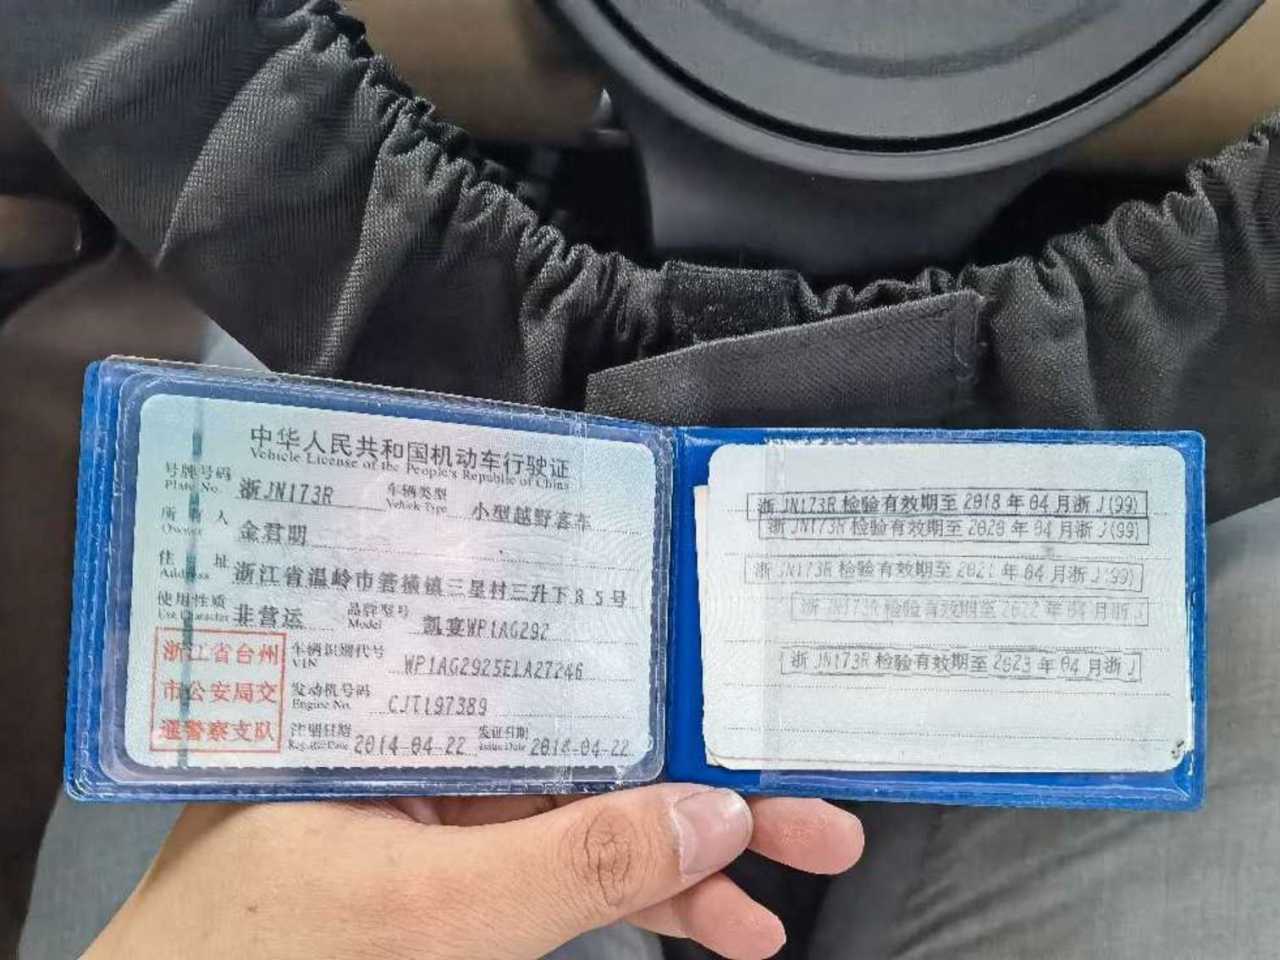 中华人民共和国机动车行驶证
Vehicle License of the People's Republic of China
号牌号码 浙JN173R 车辆类型 小型越野客车
Plate No. Vehicle Type
所有人 金君明
Owner
住址 浙江省温岭市箬横镇三星村三升下85号
Address
使用性质 非营运 品牌型号 凯宴WP1AG292
Use Character Model
浙江省台州
市公安局交
通警察支队
车辆识别代号 WP1AG2925ELA27246
VIN
发动机号码 CJT197389
Engine No.
注册日期 2014-04-22 发证日期 2014-04-22
Register Date Issue Date
浙JN173R检验有效期至2018年04月浙J(99)
浙JN173R检验有效期至2020年04月浙J(99)
浙JN173R检验有效期至2021年04月浙J(99)
浙JN173R检验有效期至2022年04月浙J
浙JN173R检验有效期至2023年04月浙J